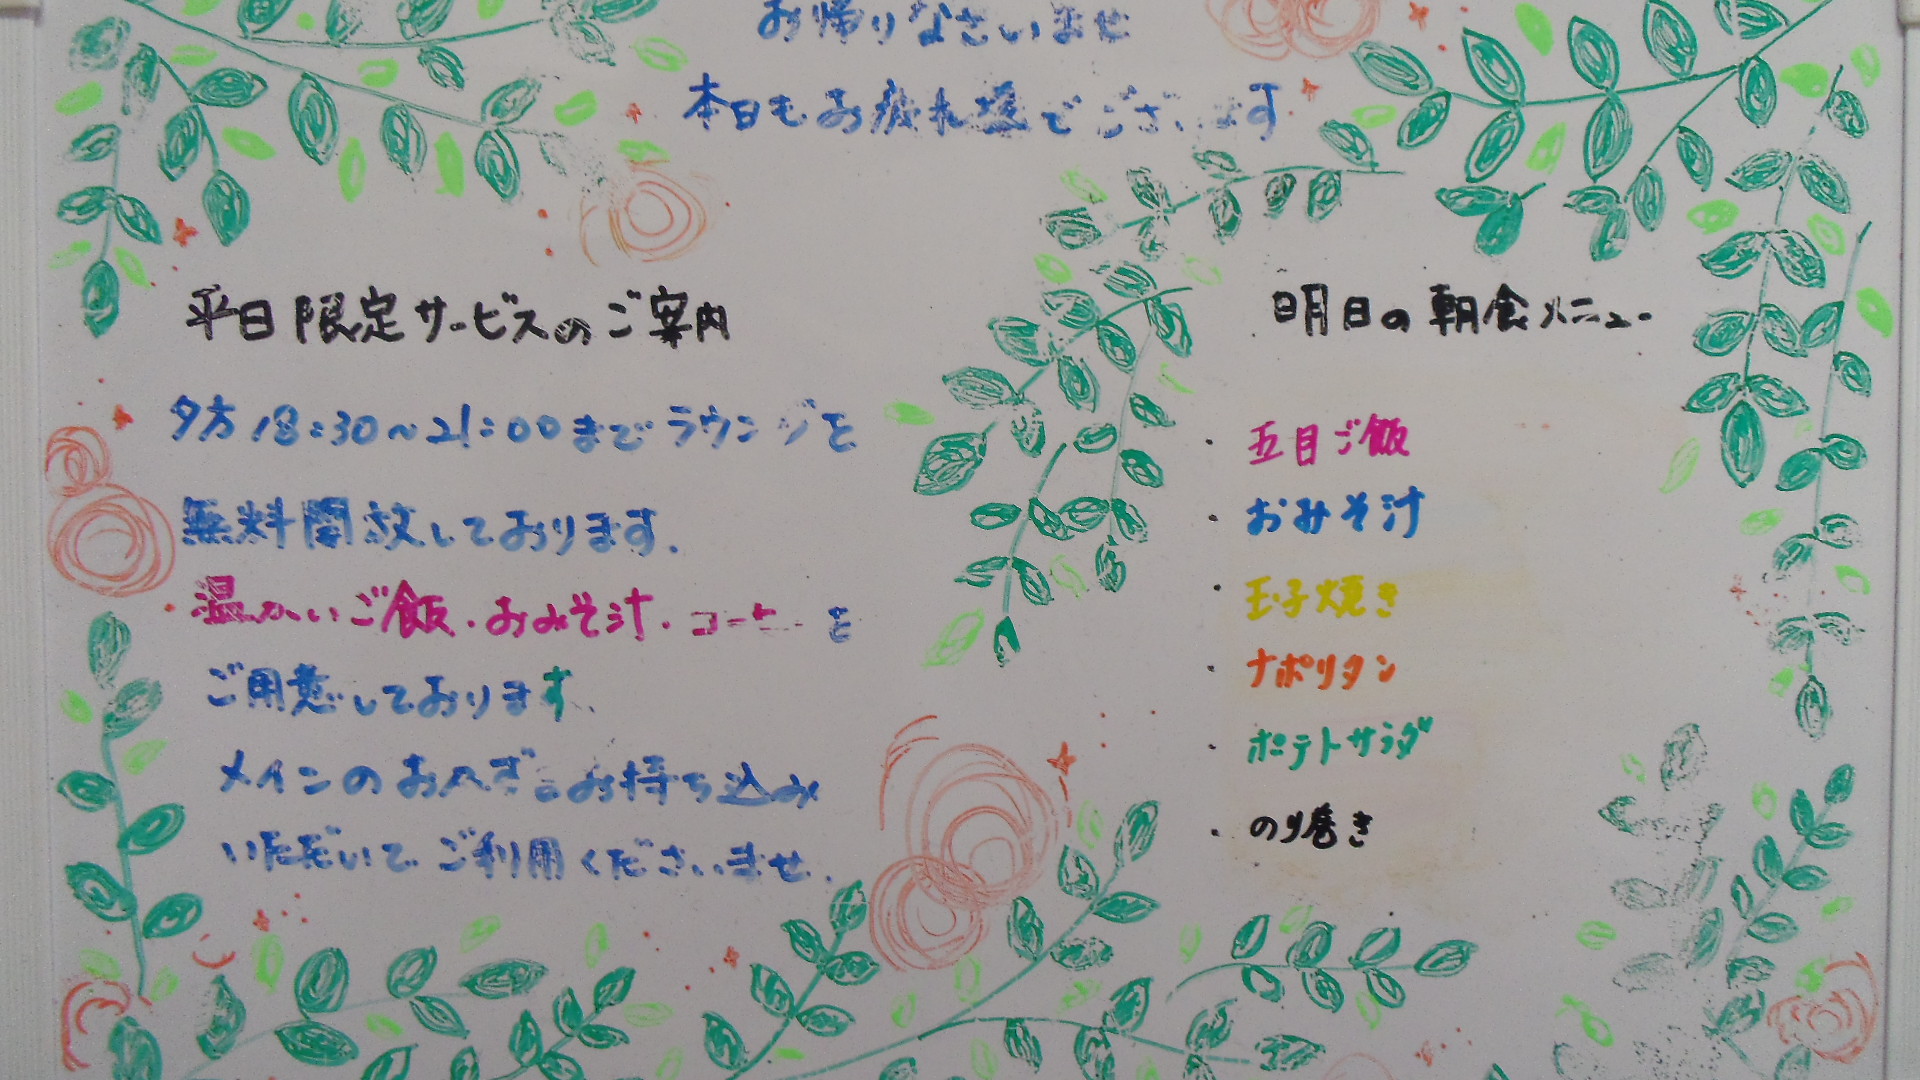 お帰りなさいませ
本日もお疲れ様でございます
平日限定サービスのご案内
夕方18:30～21:00までラウンジを
無料開放しております。
温かいご飯・おみそ汁・コーヒーを
ご用意しております。
メインのおかずをお持ち込み
いただいてご利用くださいませ。
明日の朝食メニュー
・五目ご飯
・おみそ汁
・玉子焼き
・ナポリタン
・ポテトサラダ
・のり巻き